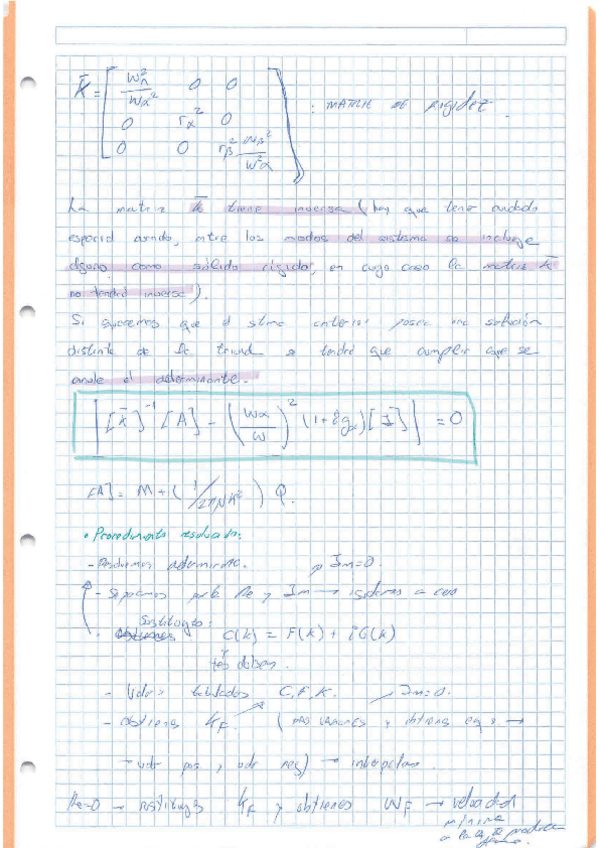 K̄ = [ ωh²/ωα² 0 0 ; 0 rα² 0 ; 0 0 rβ² ωβ²/ω²α ] : MATRIZ DE RIGIDEZ.
La matriz K̄ tiene inversa (hay que tener cuidado
especial cuando, entre los modos del sistema se incluye
alguno como sólido rígido, en cuyo caso la matriz K̄
no tendrá inversa).
Si queremos que el sistema anterior posea una solución
distinta de la trivial se tendrá que cumplir que se
anule el determinante.
| [K̄]⁻¹ [A] − (ωα/ω)² (1+i gα) [I] | = 0
[A] = M + (1/2πμk²) Q.
• Procedimiento resolución:
- Resolvemos determinante. Im=0.
- Separamos parte Re y Im → igualamos a cero
Sustituyo:
C(k) = F(k) + i G(k)
- Valores tabulados C, F, K. Im=0.
- obtienes kF. (más valores y obtienes →
→ valor pos. y valor neg) → interpolas.
Re=0 → sustituyes kF y obtienes ωF → velocidad
mínima
a la q se produce